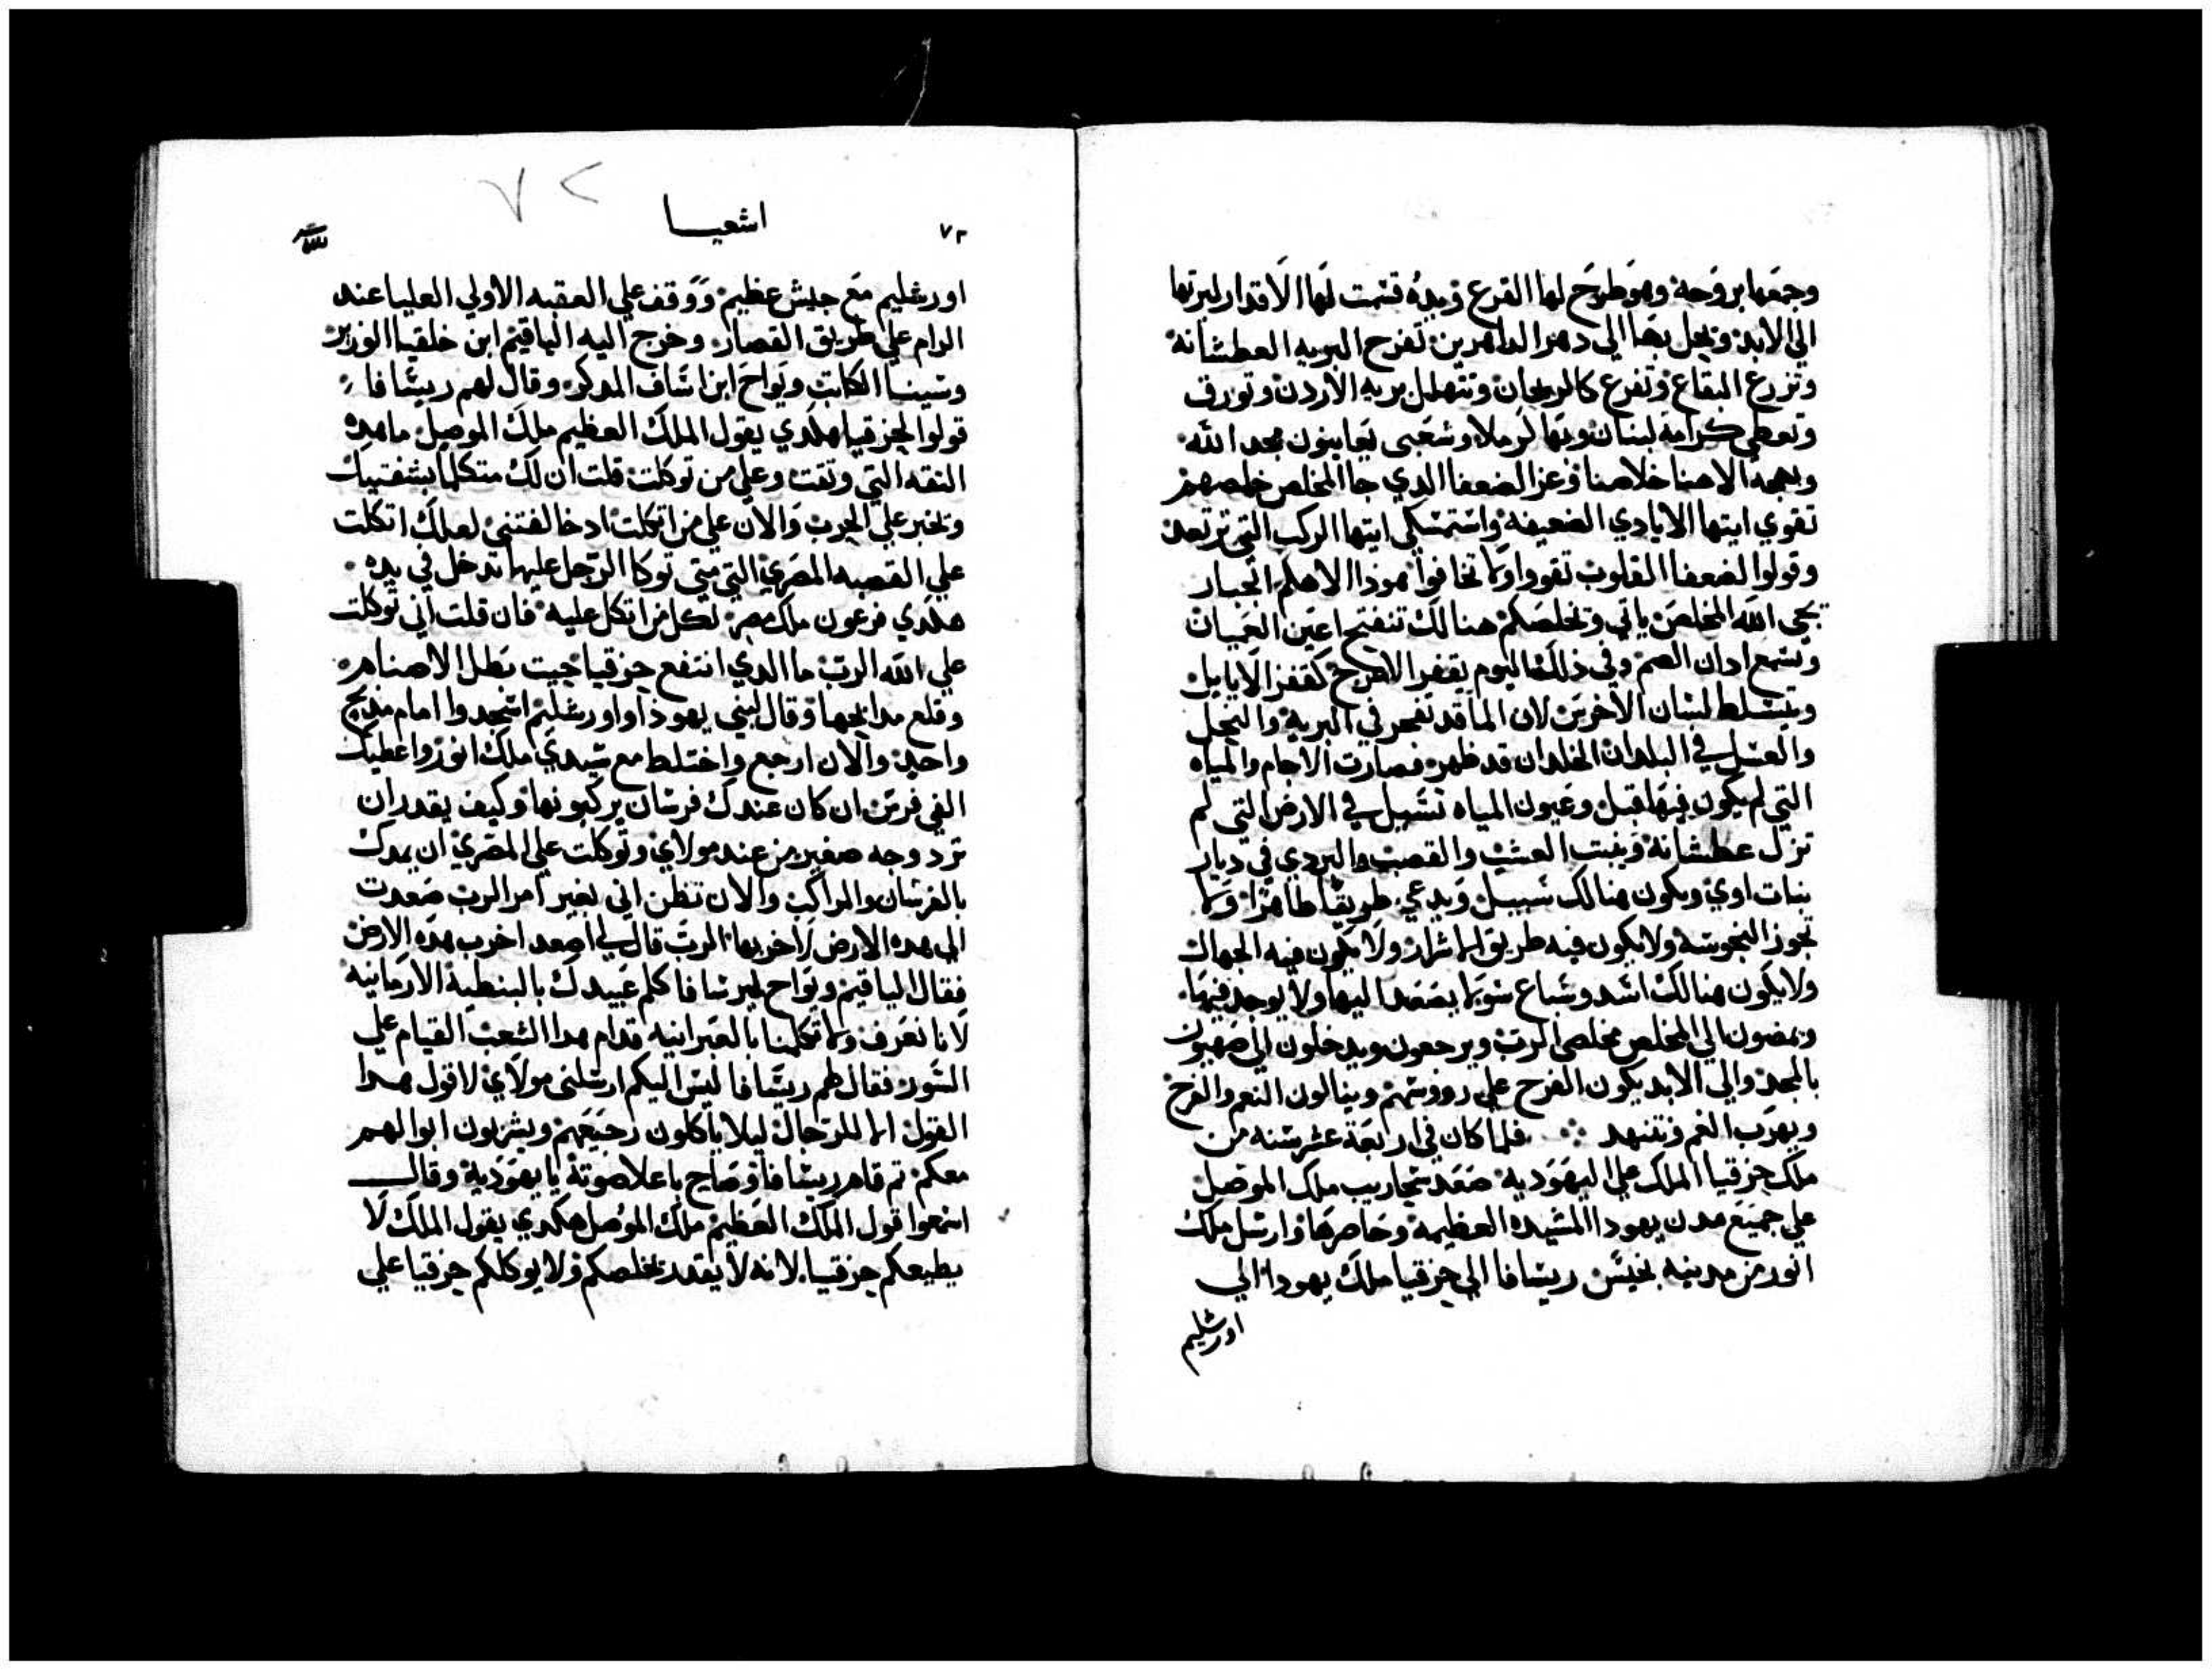 وجمعها بروحه وهو طرح لها القرع ويده قسمت لها الاقدار ليرتها
الي الابد ويحل بها الي دهر الداهرين تفرح البريه العطشانه
وتزرع البقاع وتفرع كالريحان وتتهلل بريه الاردن وتورق
وتعطي كرامة لبنان وبها الكرملا وشعبى يعاينون مجد الله
وبهجة الاهنا خلاصنا وعز الضعفا الدي جا المخلص خلصهم
تقوي ايتها الايادي الضعيفه واستمسكي ايتها الركب التي ترتعد
وقولوا لضعفا القلوب تقووا ولا تخافوا هوذا الاهكم الجبار
يجى الله المخلص ياتي وتخلصكم هنالك تنفتح اعين العميان
وتسمع ادان الصم وفى ذلك اليوم يقفز الاعرج كقفز الايايل
ويتسلط لسان الاخرس لان الما قد تفجر في البريه والنخيل
والعسل في البلدان الخلدان قد ظهر فصارت الاجام والمياه
التي لم يكون فيها قبل وعيون المياه تسيل في الارض التي لم
تزل عطشانة وينبت العشب والقصب والبردي في ديار
بنات اوي ويكون هنالك سبيل ويدعي طريقا طاهرا ولا
تجوز النجوسه ولا يكون فيه طريق الاشرار ولا يكون فيه الجهال
ولا يكون هنالك اسد وسباع سو لا يصعد اليها ولا يوجد فيها
ويمضون الي المخلص مخلصي الرب ويرجعون ويدخلون الي صهيون
بالمجد والي الابد يكون الفرح علي رووسهم وينالون النعم والفرح
ويهرب الغم وتنهد فلما كان في اربعة عشر سنه من
ملك حزقيا الملك علي اليهوديه صعد سنحاريب ملك الموصل
علي جميع مدن يهودا المشيده العظيمه وحاصرها وارسل ملك
اثور من مدينيه بخيس ريسافا الي حزقيا ملك يهودا الي
اورشليم
٧٢
اشعيا
٧٢
اورشليم مع جيش عظيم ووقف علي العقبه الاولي العليا عند
الرام علي طريق القصار وخرج اليه الياقيم ابن خلقيا الوزير
وسبنا الكاتب ويواح ابن اساف المدكر وقال لهم ريسافا
قولوا لحزقيا هكدي يقول الملك العظيم ملك الموصل ما هده
التقه التي وتقت وعلي من توكلت قلت ان لك متكلما بشفتيك
وتخبر علي الحرب والان علي من اتكلت اد خالفتني لعلك اتكلت
علي القصبه المصري التي متي توكا الرجل عليها تدخل في يده
هكدي فرعون ملك مصر لكل من اتكل عليه فان قلت اني توكلت
علي الله الرب ما الدي انتفع حزقيا حيت بطل الاصنام
وقلع مدابحها وقال لبني يهودا واورشليم اسجدوا امام مدبح
واحد والان ارجع واختلط مع سيدي ملك اثور واعطيك
الفي فرس ان كان عندك فرسان يركبونها وكيف يقدر ان
ترد وجه صغير من عند مولاي وتوكلت علي المصري ان يمدك
بالفرسان والمراكب والان تظن اني بغير امر الرب صعدت
الي هده الارض لاخربها الرب قال لي اصعد اخرب هده الارض
فقال الياقيم ويواح لريسافا كلم عبيدك بالنبطية الارمانيه
لانا نعرف ولا تكلمنا بالعبرانيه قدام هدا الشعب القيام علي
السور فقال لهم ريسافا ليس اليكم ارسلنى مولاي لاقول هدا
القول الا للرجال ليلا ياكلون رجيعهم ويشربون ابوالهم
معكم تم قام ريسافا وصاح باعلا صوته باليهودية وقال
اسمعوا قول الملك العظيم ملك الموصل هكدي يقول الملك لا
يطيعكم حزقيا لانه لا يقدر تخلصكم ولا يوكلكم حزقيا علي